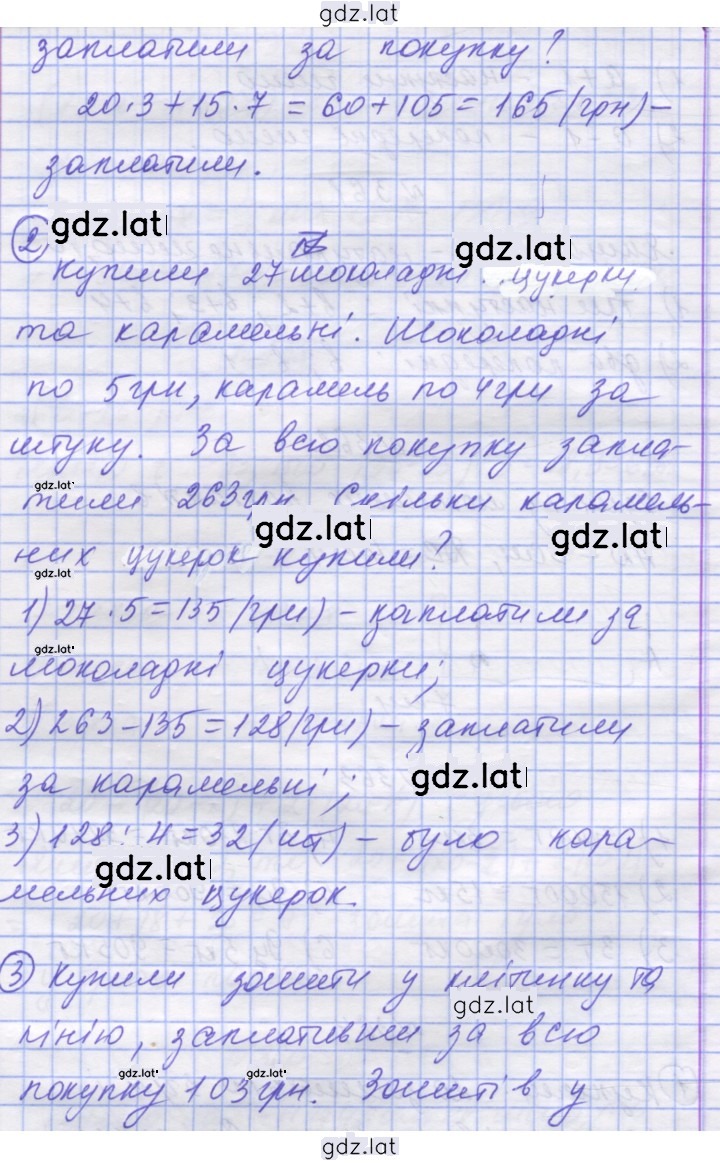 gdz.lat
заплатили за покупку?
20·3+15·7=60+105=165(грн)-
заплатили.
gdz.lat
gdz.lat
2 Купили 27 шоколадні цукерки
та карамельні. Шоколадні
по 5грн, карамель по 4грн за
штуку. За всю покупку запла-
gdz.lat
тили 263грн. Скільки карамель-
gdz.lat
gdz.lat
них цукерок купили?
gdz.lat
1) 27·5=135(грн) - заплатили за
gdz.lat
шоколадні цукерки;
2) 263-135=128(грн) - заплатили
за карамельні;
gdz.lat
3) 128:4=32(шт) - було кара-
gdz.lat
мельних цукерок.
3 Купили зошити у клітинку та
gdz.lat
лінію, заплативши за всю
gdz.lat
gdz.lat
покупку 103грн. Зошитів у
gdz.lat